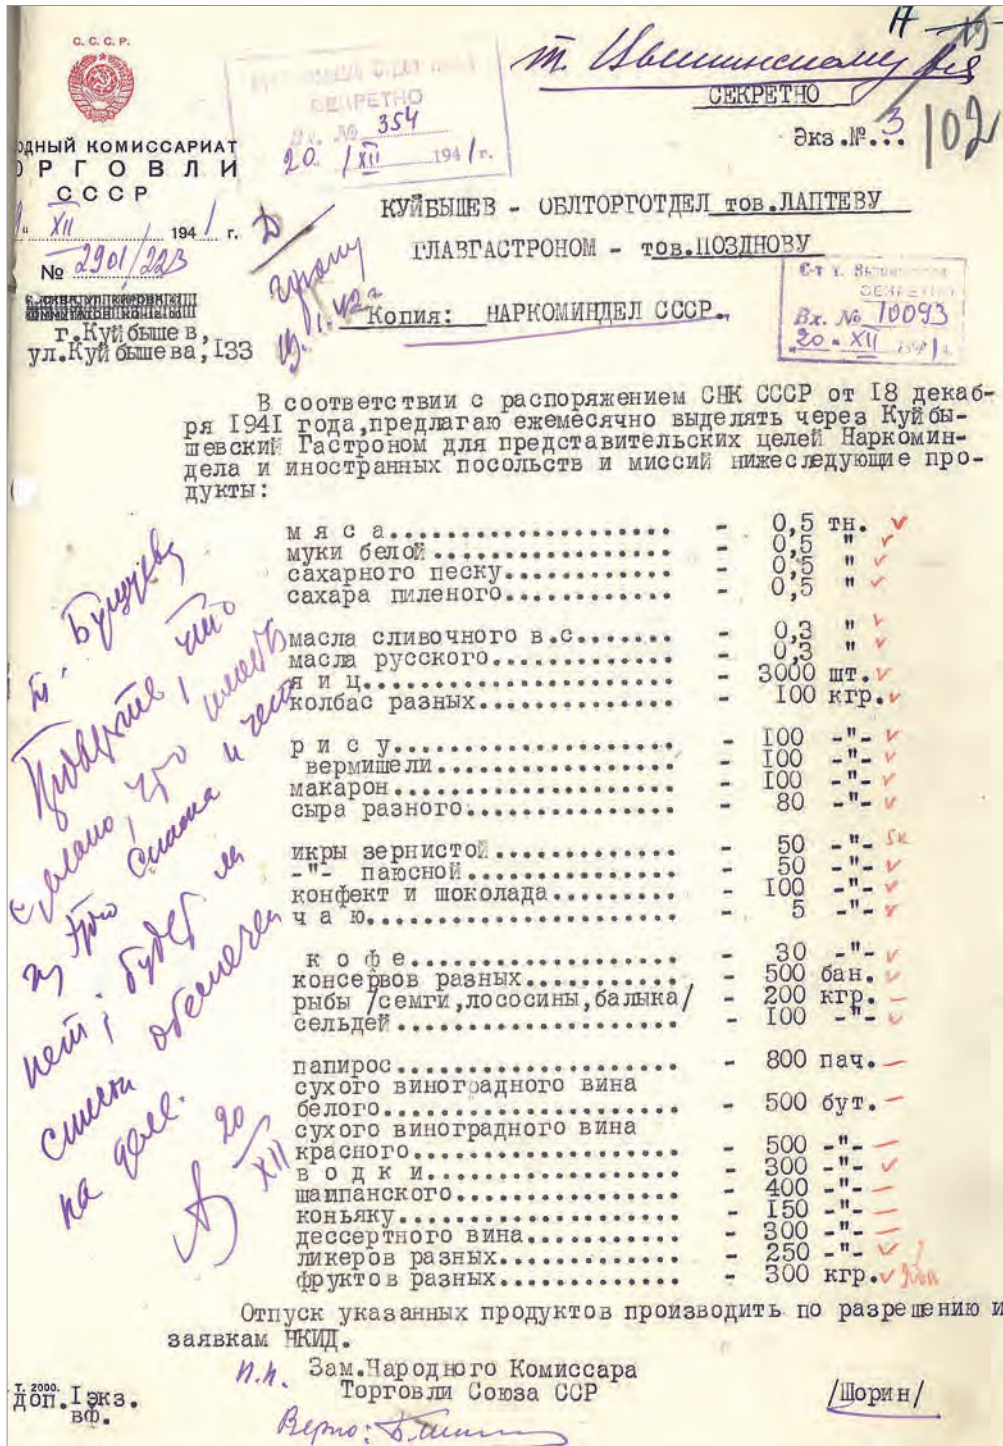 С. С. С. Р.
ОДНЫЙ КОМИССАРИАТ
ОРГОВЛИ
СССР
XII 1941 г.
№ 2901/22в
г.Куйбышев,
ул.Куйбышева,133
СЕКРЕТНО
Вх. № 354
20 / XII 1941 г.
17 19
102
СЕКРЕТНО
Экз.№ 3
КУЙБЫШЕВ - ОБЛТОРГОТДЕЛ тов.ЛАПТЕВУ
ГЛАВГАСТРОНОМ - тов.ПОЗДНОВУ
Копия: НАРКОМИНДЕЛ СССР.
С-т т.
СЕКРЕТНО
Вх. № 10093
"20" XII 1941 г.
В соответствии с распоряжением СНК СССР от 18 декаб-
ря 1941 года,предлагаю ежемесячно выделять через Куйбы-
шевский Гастроном для представительских целей Наркомин-
дела и иностранных посольств и миссий нижеследующие про-
дукты:
м я с а..................... - 0,5 тн.
муки белой.................. - 0,5 "
сахарного песку............. - 0,5 "
сахара пиленого............. - 0,5 "
масла сливочного в.с........ - 0,3 "
масла русского.............. - 0,3 "
я и ц....................... - 3000 шт.
колбас разных............... - 100 кгр.
р и с у..................... - 100 -"-
вермишели................... - 100 -"-
макарон..................... - 100 -"-
сыра разного................ - 80 -"-
икры зернистой.............. - 50 -"- 5к
-"- паюсной................. - 50 -"-
конфект и шоколада.......... - 100 -"-
ч а ю....................... - 5 -"-
к о ф е..................... - 30 -"-
консервов разных............ - 500 бан.
рыбы /семги,лососины,балыка/ - 200 кгр.
сельдей..................... - 100 -"-
папирос..................... - 800 пач.
сухого виноградного вина
белого...................... - 500 бут.
сухого виноградного вина
красного.................... - 500 -"-
в о д к и................... - 300 -"-
шампанского................. - 400 -"-
коньяку..................... - 150 -"-
дессертного вина............ - 300 -"-
ликеров разных.............. - 250 -"-
фруктов разных.............. - 300 кгр.
Отпуск указанных продуктов производить по разрешению и
заявкам НКИД.
п.п. Зам.Народного Комиссара
Торговли Союза ССР /Шорин/
Верно:
т. 2000.
доп.1экз.
вф.
т.
Проверьте, что
сделано, что
из этого списка и чего
нет; будет ли
обеспечен
список
на деле.
20
XII